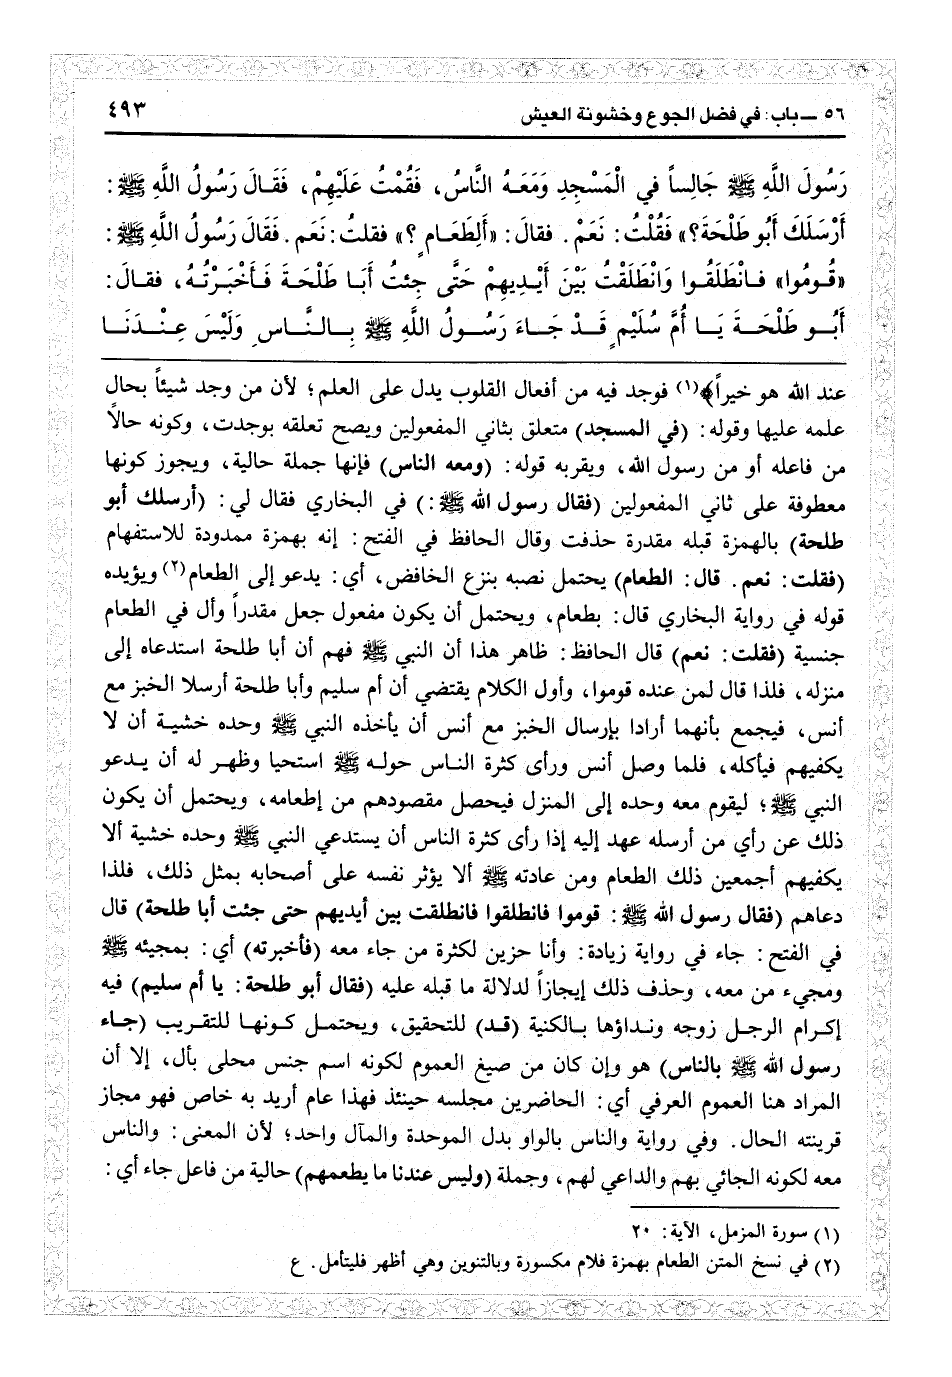 ٥٦ ـ باب: في فضل الجوع وخشونة العيش
٤٩٣
رَسُولَ اللَّهِ ﷺ جَالِساً في الْمَسْجِدِ وَمَعَهُ النَّاسُ، فَقُمْتُ عَلَيْهِمْ، فَقَالَ رَسُولُ اللَّهِ ﷺ:
أَرْسَلَكَ أَبُو طَلْحَةَ؟» فَقُلْتُ: نَعَمْ. فقالَ: «أَلِطَعَامٍ ؟» فقلتُ: نَعَم. فَقَالَ رَسُولُ اللَّهِ ﷺ:
«قُومُوا» فَانْطَلَقُوا وَانْطَلَقْتُ بَيْنَ أَيْدِيهِمْ حَتَّى جِئتُ أَبَا طَلْحَةَ فَأَخْبَرْتُهُ، فقالَ:
أَبُو طَلْحَةَ يَا أُمَّ سُلَيْمٍ قَدْ جَاءَ رَسُولُ اللَّهِ ﷺ بِالنَّاسِ وَلَيْسَ عِنْدَنَا
عند الله هو خيراً﴾(١) فوجد فيه من أفعال القلوب يدل على العلم؛ لأن من وجد شيئاً بحال
علمه عليها وقوله: (في المسجد) متعلق بثاني المفعولين ويصح تعلقه بوجدت، وكونه حالاً
من فاعله أو من رسول الله، ويقربه قوله: (ومعه الناس) فإنها جملة حالية، ويجوز كونها
معطوفة على ثاني المفعولين (فقال رسول الله ﷺ:) في البخاري فقال لي: (أرسلك أبو
طلحة) بالهمزة قبله مقدرة حذفت وقال الحافظ في الفتح: إنه بهمزة ممدودة للاستفهام
(فقلت: نعم. قال: الطعام) يحتمل نصبه بنزع الخافض، أي: يدعو إلى الطعام(٢) ويؤيده
قوله في رواية البخاري قال: بطعام، ويحتمل أن يكون مفعول جعل مقدراً وأل في الطعام
جنسية (فقلت: نعم) قال الحافظ: ظاهر هذا أن النبي ﷺ فهم أن أبا طلحة استدعاه إلى
منزله، فلذا قال لمن عنده قوموا، وأول الكلام يقتضي أن أم سليم وأبا طلحة أرسلا الخبز مع
أنس، فيجمع بأنهما أرادا بإرسال الخبز مع أنس أن يأخذه النبي ﷺ وحده خشية أن لا
يكفيهم فيأكله، فلما وصل أنس ورأى كثرة الناس حوله ﷺ استحيا وظهر له أن يدعو
النبي ﷺ؛ ليقوم معه وحده إلى المنزل فيحصل مقصودهم من إطعامه، ويحتمل أن يكون
ذلك عن رأي من أرسله عهد إليه إذا رأى كثرة الناس أن يستدعي النبي ﷺ وحده خشية ألا
يكفيهم أجمعين ذلك الطعام ومن عادته ﷺ ألا يؤثر نفسه على أصحابه بمثل ذلك، فلذا
دعاهم (فقال رسول الله ﷺ: قوموا فانطلقوا فانطلقت بين أيديهم حتى جئت أبا طلحة) قال
في الفتح: جاء في رواية زيادة: وأنا حزين لكثرة من جاء معه (فأخبرته) أي: بمجيئه ﷺ
ومجيء من معه، وحذف ذلك إيجازاً لدلالة ما قبله عليه (فقال أبو طلحة: يا أم سليم) فيه
إكرام الرجل زوجه ونداؤها بالكنية (قد) للتحقيق، ويحتمل كونها للتقريب (جاء
رسول الله ﷺ بالناس) هو وإن كان من صيغ العموم لكونه اسم جنس محلى بأل، إلا أن
المراد هنا العموم العرفي أي: الحاضرين مجلسه حينئذ فهذا عام أريد به خاص فهو مجاز
قرينته الحال. وفي رواية والناس بالواو بدل الموحدة والمآل واحد؛ لأن المعنى: والناس
معه لكونه الجائي بهم والداعي لهم، وجملة (وليس عندنا ما يطعمهم) حالية من فاعل جاء أي:
(١) سورة المزمل، الآية: ٢٠
(٢) في نسخ المتن الطعام بهمزة فلام مكسورة وبالتنوين وهي أظهر فليتأمل. ع